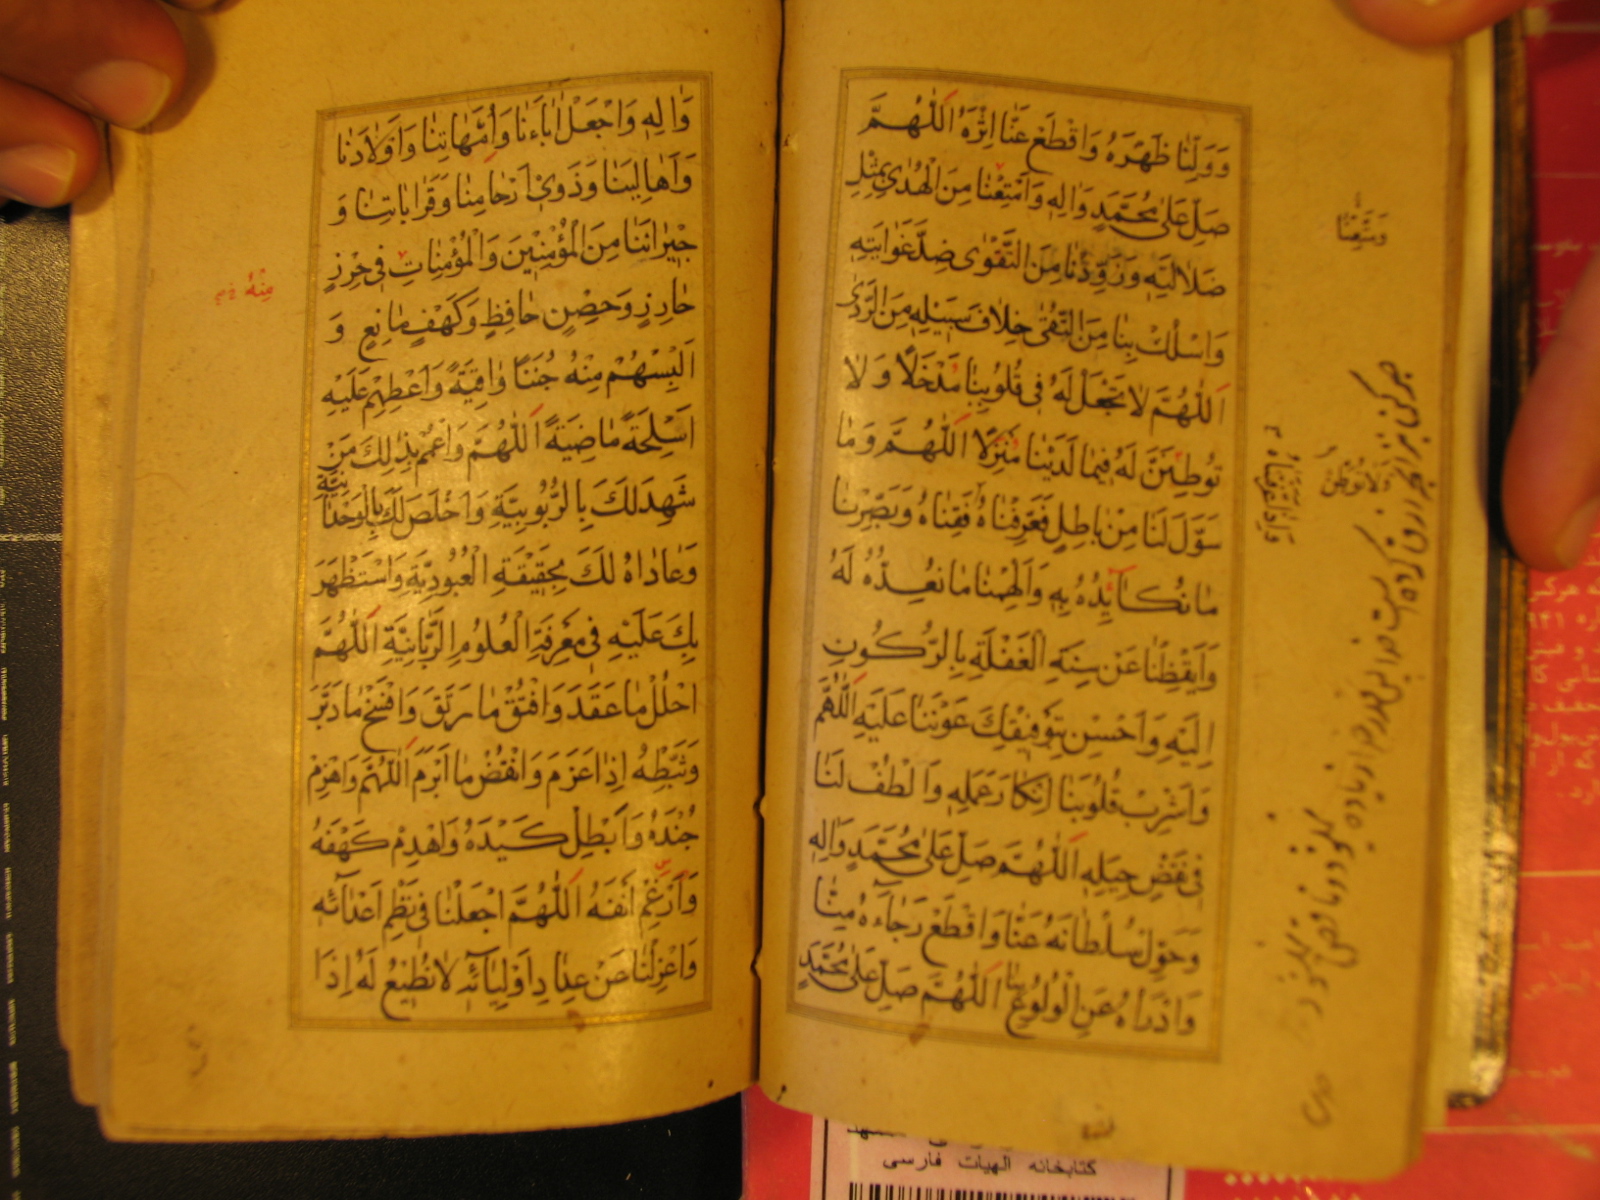 وَوَلِّنَا ظَهْرَهُ وَاقْطَعْ عَنَّا اِثْرَهُ اَللّٰهُمَّ
صَلِّ عَلٰى مُحَمَّدٍ وَاٰلِهِ وَاَمْتِعْنَا مِنَ الْهُدٰى بِمِثْلِ
ضَلَالَتِهِ وَزَوِّدْنَا مِنَ التَّقْوٰى ضِدَّ غَوَايَتِهِ
وَاسْلُكْ بِنَا مِنَ التُّقٰى خِلَافَ سَبِيلِهِ مِنَ الرَّدٰى
اَللّٰهُمَّ لَا تَجْعَلْ لَهُ فِى قُلُوبِنَا مَدْخَلًا وَلَا
تُوطِنَنَّ لَهُ فِيمَا لَدَيْنَا مَنْزِلًا اَللّٰهُمَّ وَمَا
سَوَّلَ لَنَا مِنْ بَاطِلٍ فَعَرِّفْنَاهُ فَقِنَاهُ وَبَصِّرْنَا
مَا نُكَائِدُهُ بِهِ وَاَلْهِمْنَا مَا نُعِدُّهُ لَهُ
وَاَيْقِظْنَا عَنْ سِنَةِ الْغَفْلَةِ بِالرُّكُونِ
اِلَيْهِ وَاَحْسِنْ بِتَوْفِيقِكَ عَوْنَنَا عَلَيْهِ اَللّٰهُمَّ
وَاَشْرِبْ قُلُوبَنَا اِنْكَارَ عَمَلِهِ وَالْطُفْ لَنَا
فِى نَقْضِ حِيَلِهِ اَللّٰهُمَّ صَلِّ عَلٰى مُحَمَّدٍ وَاٰلِهِ
وَحَوِّلْ سُلْطَانَهُ عَنَّا وَاقْطَعْ رَجَاءَهُ مِنَّا
وَادْرَاْهُ عَنِ الْوُلُوعِ بِنَا اَللّٰهُمَّ صَلِّ عَلٰى مُحَمَّدٍ
وَاٰلِهِ وَاجْعَلْ اٰبَاءَنَا وَاُمَّهَاتِنَا وَاَوْلَادَنَا
وَاَهَالِيَنَا وَذَوِى اَرْحَامِنَا وَقَرَابَاتِنَا وَ
جِيرَانَنَا مِنَ الْمُؤْمِنِينَ وَالْمُؤْمِنَاتِ فِى حِرْزٍ
حَارِزٍ وَحِصْنٍ حَافِظٍ وَكَهْفٍ مَانِعٍ وَ
اَلْبِسْهُمْ مِنْهُ جُنَنًا وَاقِيَةً وَاَعْطِهِمْ عَلَيْهِ
اَسْلِحَةً مَاضِيَةً اَللّٰهُمَّ وَاعْمُمْ بِذٰلِكَ مَنْ
شَهِدَ لَكَ بِالرُّبُوبِيَّةِ وَاَخْلَصَ لَكَ بِالْوَحْدَانِيَّةِ
وَعَادَاهُ لَكَ بِحَقِيقَةِ الْعُبُودِيَّةِ وَاسْتَظْهَرَ
بِكَ عَلَيْهِ فِى مَعْرِفَةِ الْعُلُومِ الرَّبَّانِيَّةِ اَللّٰهُمَّ
احْلُلْ مَا عَقَدَ وَافْتُقْ مَا رَتَقَ وَافْسَخْ مَا دَبَّرَ
وَثَبِّطْهُ اِذَا عَزَمَ وَانْقُضْ مَا اَبْرَمَ اَللّٰهُمَّ وَاهْزِمْ
جُنْدَهُ وَاَبْطِلْ كَيْدَهُ وَاهْدِمْ كَهْفَهُ
وَاَرْغِمْ اَنْفَهُ اَللّٰهُمَّ اجْعَلْنَا فِى نَظْمِ اَعْدَائِهِ
وَاعْزِلْنَا عَنْ عِدَادِ اَوْلِيَائِهِ لَا نُطِيعُ لَهُ اِذَا
كتابخانه الهیات فارسی